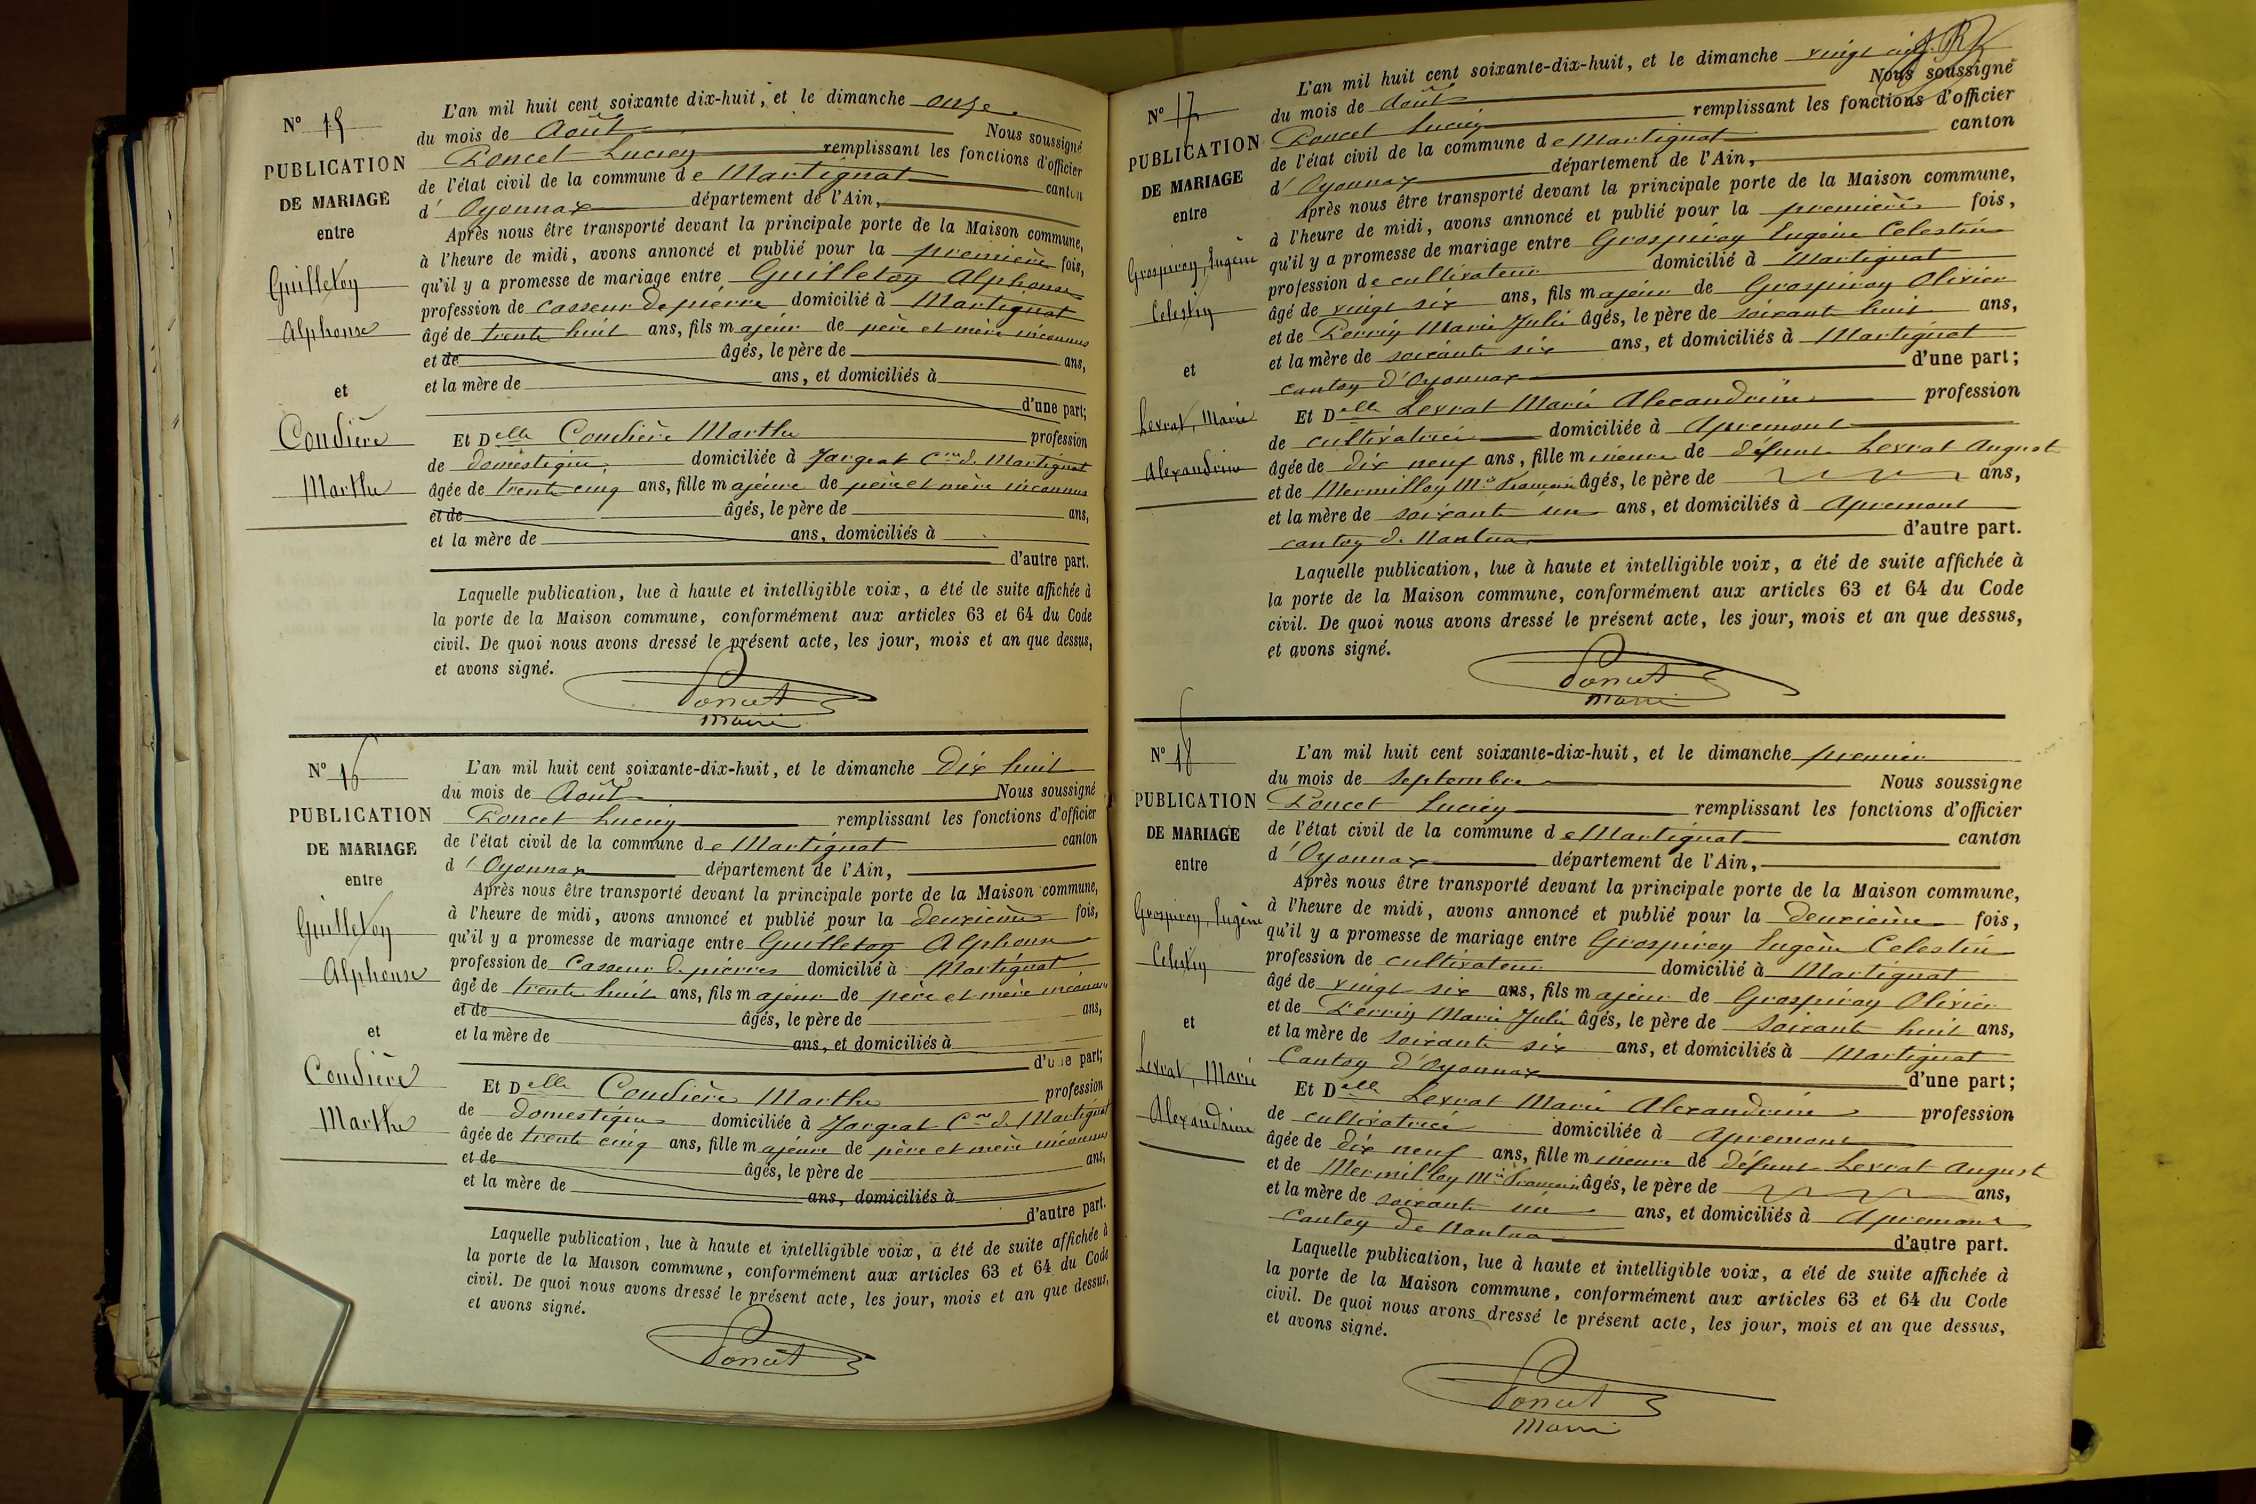 N° 15
PUBLICATION
DE MARIAGE
entre
Guilleton
Alphonse
et
Coudière
Marthe
L'an mil huit cent soixante dix-huit, et le dimanche onze
du mois de Août Nous soussigné
Poncet Lucien remplissant les fonctions d'officier
de l'état civil de la commune de Martignat canton
d'Oyonnax département de l'Ain,
Après nous être transporté devant la principale porte de la Maison commune,
à l'heure de midi, avons annoncé et publié pour la première fois,
qu'il y a promesse de mariage entre Guilleton Alphonse
profession de casseur de pierre domicilié à Martignat
âgé de trente huit ans, fils majeur de père et mère inconnus
et de âgés, le père de ans,
et la mère de ans, et domiciliés à
d'une part;
Et Delle Coudière Marthe profession
de domestique domiciliée à Jargeat Cne de Martignat
âgée de trente cinq ans, fille majeure de père et mère inconnus
et de âgés, le père de ans,
et la mère de ans, domiciliés à
d'autre part.
Laquelle publication, lue à haute et intelligible voix, a été de suite affichée à
la porte de la Maison commune, conformément aux articles 63 et 64 du Code
civil. De quoi nous avons dressé le présent acte, les jour, mois et an que dessus,
et avons signé.
Poncet
Maire
N° 16
PUBLICATION
DE MARIAGE
entre
Guilleton
Alphonse
et
Coudière
Marthe
L'an mil huit cent soixante-dix-huit, et le dimanche Dix huit
du mois de Août Nous soussigné
Poncet Lucien remplissant les fonctions d'officier
de l'état civil de la commune de Martignat canton
d'Oyonnax département de l'Ain,
Après nous être transporté devant la principale porte de la Maison commune,
à l'heure de midi, avons annoncé et publié pour la deuxième fois,
qu'il y a promesse de mariage entre Guilleton Alphonse
profession de Casseur de pierres domicilié à Martignat
âgé de trente huit ans, fils majeur de père et mère inconnus
et de âgés, le père de ans,
et la mère de ans, et domiciliés à
d'une part;
Et Delle Coudière Marthe profession
de domestique domiciliée à Jargeat Cne de Martignat
âgée de trente cinq ans, fille majeure de père et mère inconnus
et de âgés, le père de ans,
et la mère de ans, domiciliés à
d'autre part.
Laquelle publication, lue à haute et intelligible voix, a été de suite affichée à
la porte de la Maison commune, conformément aux articles 63 et 64 du Code
civil. De quoi nous avons dressé le présent acte, les jour, mois et an que dessus,
et avons signé.
Poncet
N° 17
PUBLICATION
DE MARIAGE
entre
Grospiron, Eugène
Celestin
et
Levrat, Marie
Alexandrine
L'an mil huit cent soixante-dix-huit, et le dimanche vingt cinq
du mois de Août Nous soussigné
Poncet Lucien remplissant les fonctions d'officier
de l'état civil de la commune de Martignat canton
d'Oyonnax département de l'Ain,
Après nous être transporté devant la principale porte de la Maison commune,
à l'heure de midi, avons annoncé et publié pour la première fois,
qu'il y a promesse de mariage entre Grospiron Eugène Celestin
profession de cultivateur domicilié à Martignat
âgé de vingt six ans, fils majeur de Grospiron Olivier
et de Perrin Marie Julie âgés, le père de soixante huit ans,
et la mère de soixante six ans, et domiciliés à Martignat
canton d'Oyonnax d'une part;
Et Delle Levrat Marie Alexandrine profession
de cultivatrice domiciliée à Apremont
âgée de dix neuf ans, fille mineure de défunt Levrat August
et de Mermillon Mie Françoise âgés, le père de ans,
et la mère de soixante un ans, et domiciliés à Apremont
canton de Nantua d'autre part.
Laquelle publication, lue à haute et intelligible voix, a été de suite affichée à
la porte de la Maison commune, conformément aux articles 63 et 64 du Code
civil. De quoi nous avons dressé le présent acte, les jour, mois et an que dessus,
et avons signé.
Poncet
Maire
N° 18
PUBLICATION
DE MARIAGE
entre
Grospiron, Eugène
Celestin
et
Levrat, Marie
Alexandrine
L'an mil huit cent soixante-dix-huit, et le dimanche premier
du mois de septembre Nous soussigné
Poncet Lucien remplissant les fonctions d'officier
de l'état civil de la commune de Martignat canton
d'Oyonnax département de l'Ain,
Après nous être transporté devant la principale porte de la Maison commune,
à l'heure de midi, avons annoncé et publié pour la deuxième fois,
qu'il y a promesse de mariage entre Grospiron Eugène Celestin
profession de cultivateur domicilié à Martignat
âgé de vingt six ans, fils majeur de Grospiron Olivier
et de Perrin Marie Julie âgés, le père de soixante huit ans,
et la mère de soixante six ans, et domiciliés à Martignat
Canton d'Oyonnax d'une part;
Et Delle Levrat Marie Alexandrine profession
de cultivatrice domiciliée à Apremont
âgée de dix neuf ans, fille mineure de défunt Levrat August
et de Mermillon Mie Françoise âgés, le père de ans,
et la mère de soixante un ans, et domiciliés à Apremont
Canton de Nantua d'autre part.
Laquelle publication, lue à haute et intelligible voix, a été de suite affichée à
la porte de la Maison commune, conformément aux articles 63 et 64 du Code
civil. De quoi nous avons dressé le présent acte, les jour, mois et an que dessus,
et avons signé.
Poncet
Maire